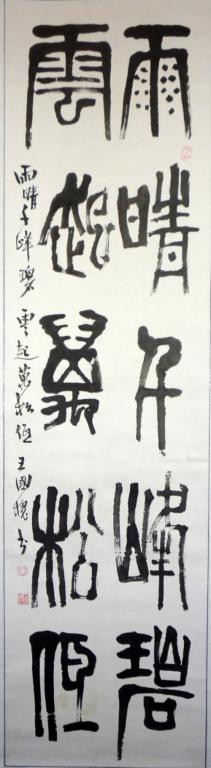 雨晴千峰碧
雲起萬松低
雨晴千峰碧 雲起萬松低 王國槐书